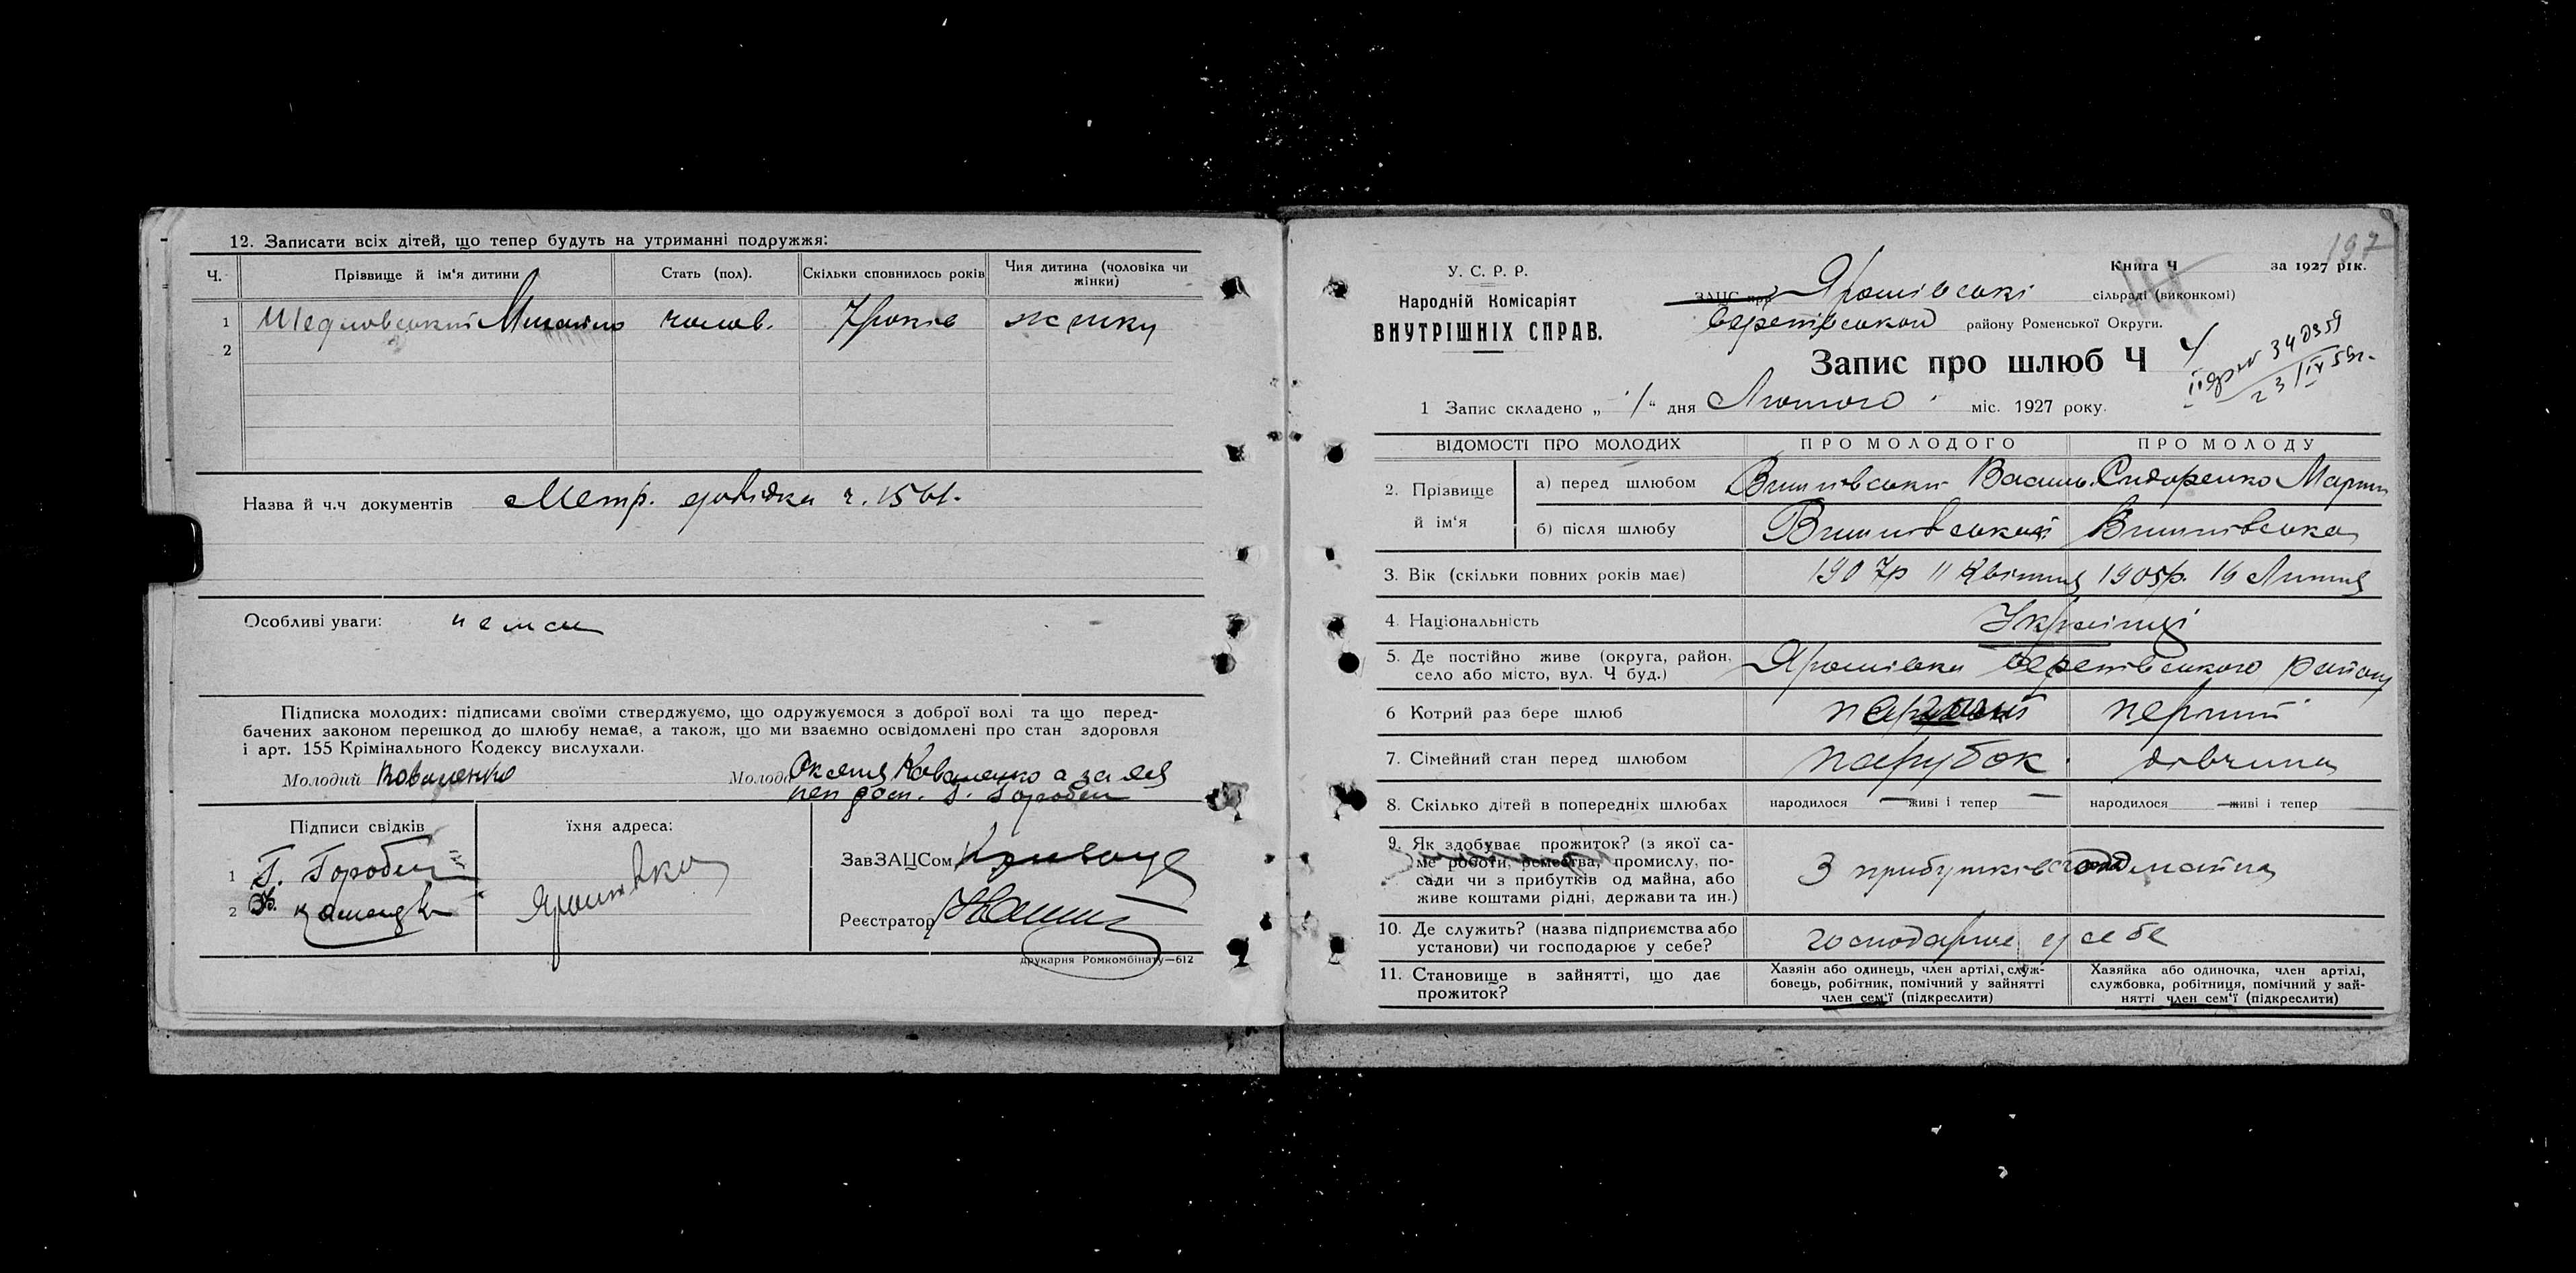 12. Записати всіх дітей, що тепер будуть на утриманні подружжя:
Ч. Прізвище й ім'я дитини Стать (пол). Скільки сповнилось років Чия дитина (чоловіка чи жінки)
1 Шедловський Михайло чолов. 7 років жінки
2
Назва й ч.ч документів Метр. довідка ч. 1561.
Особливі уваги: нема
Підписка молодих: підписами своїми стверджуємо, що одружуємося з доброї волі та що перед-
бачених законом перешкод до шлюбу немає, а також, що ми взаємно освідомлені про стан здоровля
і арт. 155 Крімінального Кодексу вислухали.
Молодий Коваленко Молода Оксана Коваленко а за неї
Г. Горобец
Підписи свідків їхня адреса:
1 Г. Горобец
2
Ярошівка
ЗавЗАЦСом
Реєстратор
друкарня Ромкомбінату—612
197
У. С. Р. Р.
Народній Комісаріят
ВНУТРІШНІХ СПРАВ.
Книга Ч за 1927 рік.
ЗАЦС при Ярошівські сільраді (виконкомі)
району Роменської Округи.
Запис про шлюб Ч 4
1 Запис складено „ 1 " дня Лютого міс. 1927 року.
ВІДОМОСТІ ПРО МОЛОДИХ ПРО МОЛОДОГО ПРО МОЛОДУ
2. Прізвище й ім'я
а) перед шлюбом Вишнівський Василь Сидоренко Мария
б) після шлюбу Вишнівський Вишнівська
3. Вік (скільки повних років має) 1907р 11 Квітня 1905р. 16 Липня
4. Національність Українці
5. Де постійно живе (округа, район,
село або місто, вул. Ч буд.) Ярошівка Веретівського району
6 Котрий раз бере шлюб перший перший
7. Сімейний стан перед шлюбом парубок дівчина
8. Скілько дітей в попередніх шлюбах народилося — живі і тепер — народилося — живі і тепер —
9. Як здобуває прожиток? (з якої са-
ме роботи, ремества, промислу, по-
сади чи з прибутків од майна, або
живе коштами рідні, держави та ин.) З прибутків од майна
10. Де служить? (назва підприємства або
установи) чи господарює у себе? господарює у себе
11. Становище в зайнятті, що дає
прожиток?
Хазяін або одинець, член артілі, служ-
бовець, робітник, помічний у зайнятті
член сем'ї (підкреслити)
Хазяйка або одиночка, член артілі,
службовка, робітниця, помічний у зай-
нятті член сем'ї (підкреслити)